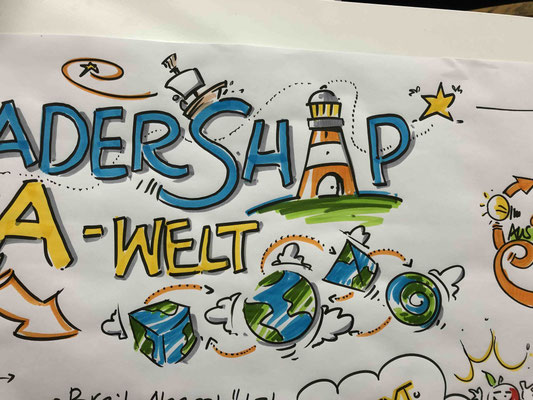 ADERSHIP
A-WELT
AUS